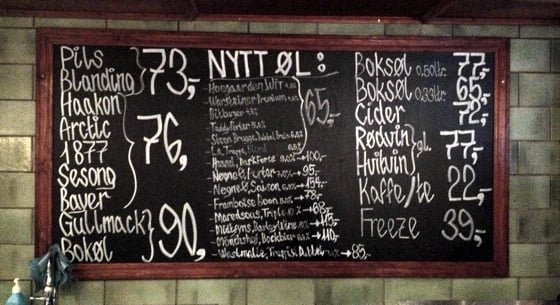 Pils
Blanding 73,-
Haakon
Arctic
1877 76,
Sesong
Bayer
Gullmack 90,-
Bokøl
NYTT ØL:
- Hoegaarden WIT
- Warsteiner Premium
- Bitburger
- Teddy Porter
65,-
- La Trappe Blond
Amund, Dark Force → 100,-
- Nøgne Ø, Porter → 95,-
- Nøgne Ø, Saison → 154,-
- Framboise Boon → 78,-
- Maredsous, Triple 10% → 68,-
- Midtfyns, Barley Wine → 115,-
- Mönchshof, Bockbier → 110,-
- Westmalle, Trapist Dubbel → 85,-
Boksøl 0,50ltr. 77,-
Boksøl 0,33ltr. 65,-
Cider 72,-
Rødvin
Hvitvin gl. 77,-
Kaffe/te 22,-
Freeze 39,-